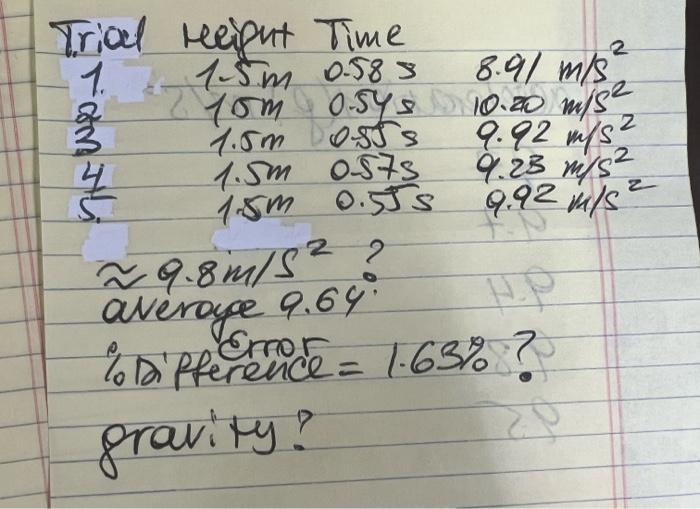 Trial Height Time
1. 1.5m 0.58s 8.91 m/s²
2 1.5m 0.54s 10.20 m/s²
3 1.5m 0.55s 9.92 m/s²
4 1.5m 0.57s 9.23 m/s²
5. 1.5m 0.55s 9.92 m/s²
≈ 9.8m/s² ?
average 9.64.
Error
% Difference = 1.63% ?
gravity?